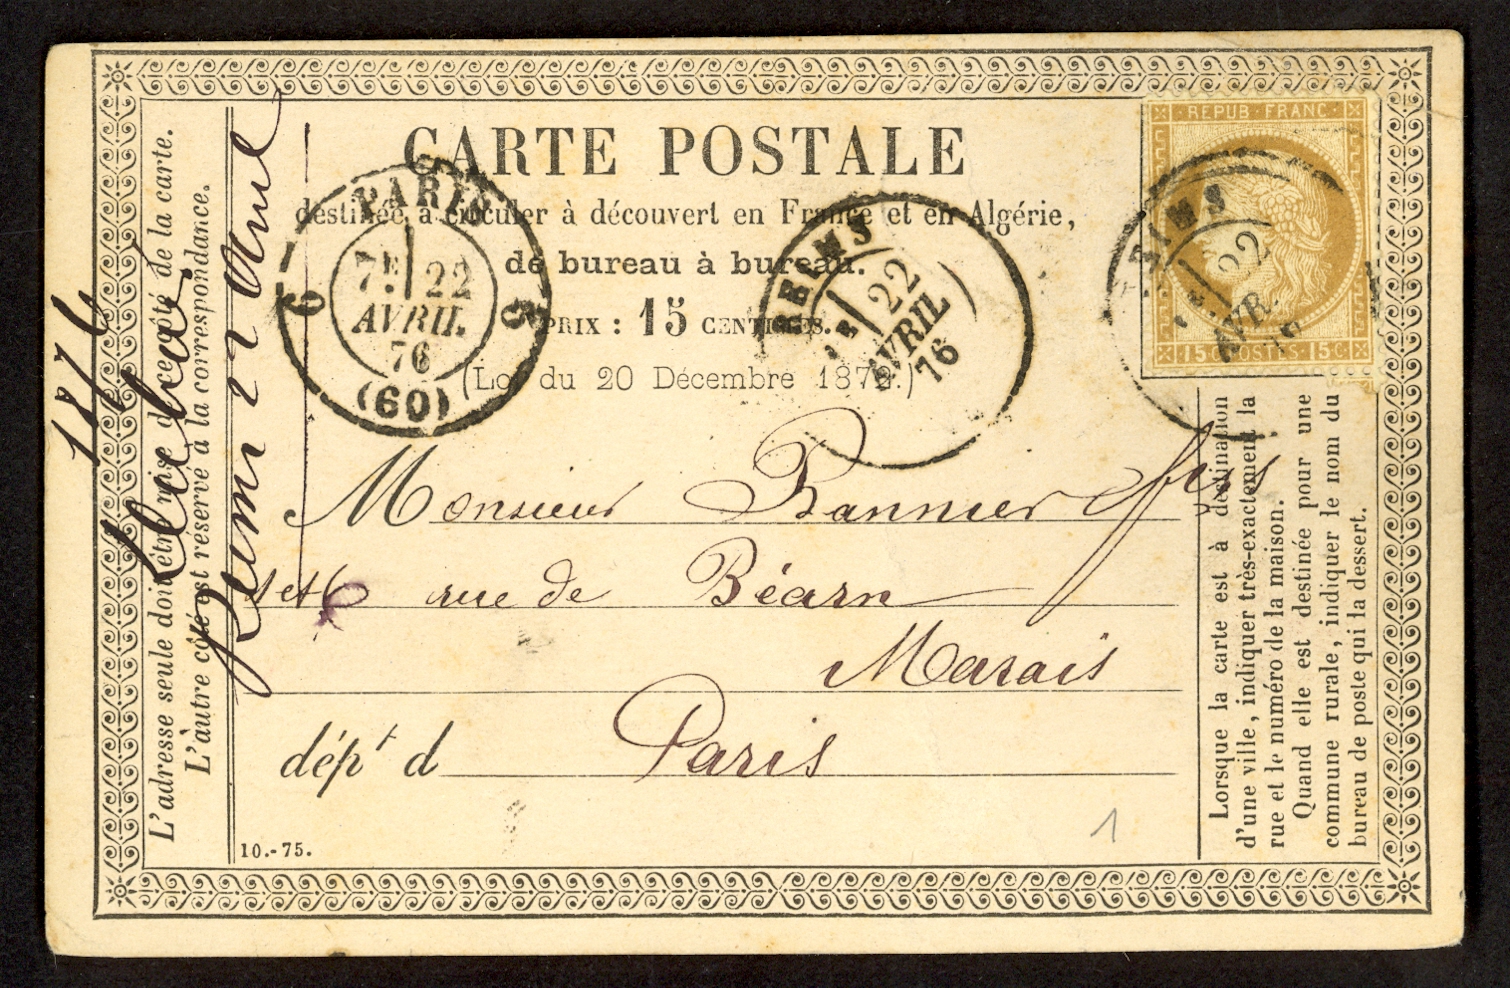 CARTE POSTALE
destinée à circuler à découvert en France et en Algérie,
de bureau à bureau.
PRIX : 15 CENTIMES.
(Loi du 20 Décembre 1872.)
REPUB · FRANC ·
15 C · POSTES · 15 C
PARIS
7E 22
AVRIL
76
(60)
REIMS
22
AVRIL
76
REIMS
22
AVR.
Monsieur Bannier fres
1 et 6 rue de Béarn
Marais
dépt d Paris
10.-75.
1
L'adresse seule doit être mise de ce côté de la carte.
L'autre côté est réservé à la correspondance.
1876
Reims 22 avril
Lorsque la carte est à destination
d'une ville, indiquer très-exactement la
rue et le numéro de la maison.
Quand elle est destinée pour une
commune rurale, indiquer le nom du
bureau de poste qui la dessert.